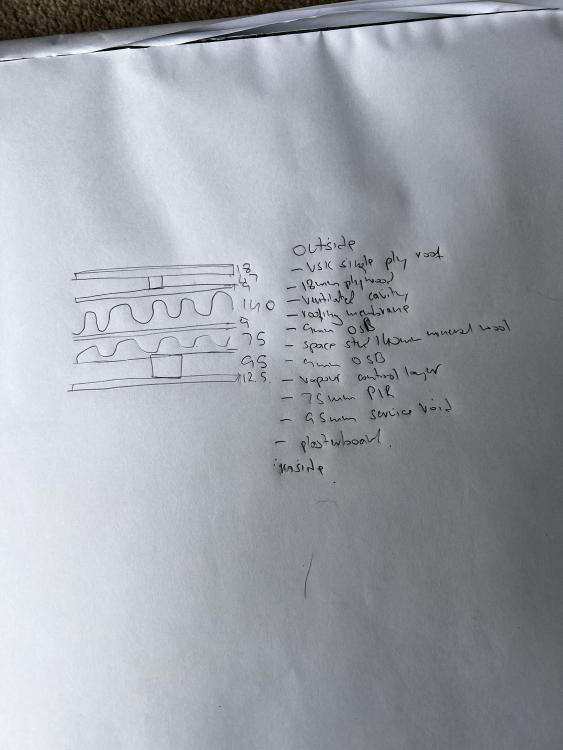 outside
- VSK single ply roof
- 18mm plywood
- ventilated cavity
- roofing membrane
- 9mm OSB
- space stud 140mm mineral wool
- 9mm OSB
- vapour control layer
- 75mm PIR
- 95mm service void
- plasterboard.
inside.
18
47
140
9
75
95
12.5.